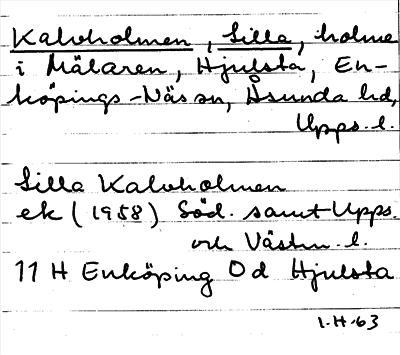 Kalvholmen, Lilla, holme
i Mälaren, Hjulsta, En-
köpings-Näs sn, Åsunda hd,
Upps. l.
Lilla Kalvholmen
ek (1958) Söd. samt Upps.
och Västm. l.
11 H Enköping 0 d Hjulsta
1.H.63